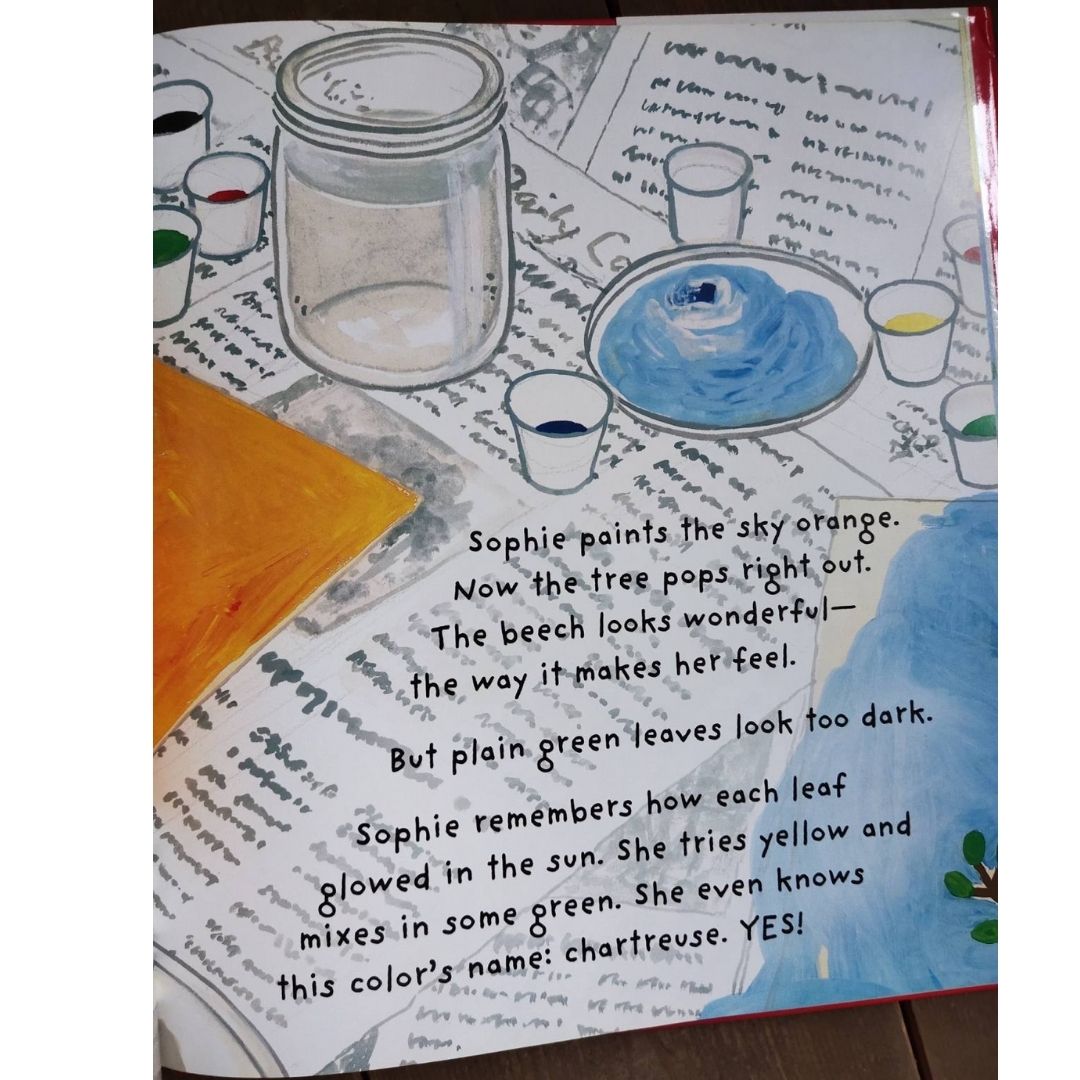 Daily Co
Sophie paints the sky orange.
Now the tree pops right out.
The beech looks wonderful—
the way it makes her feel.
But plain green leaves look too dark.
Sophie remembers how each leaf
glowed in the sun. She tries yellow and
mixes in some green. She even knows
this color's name: chartreuse. YES!